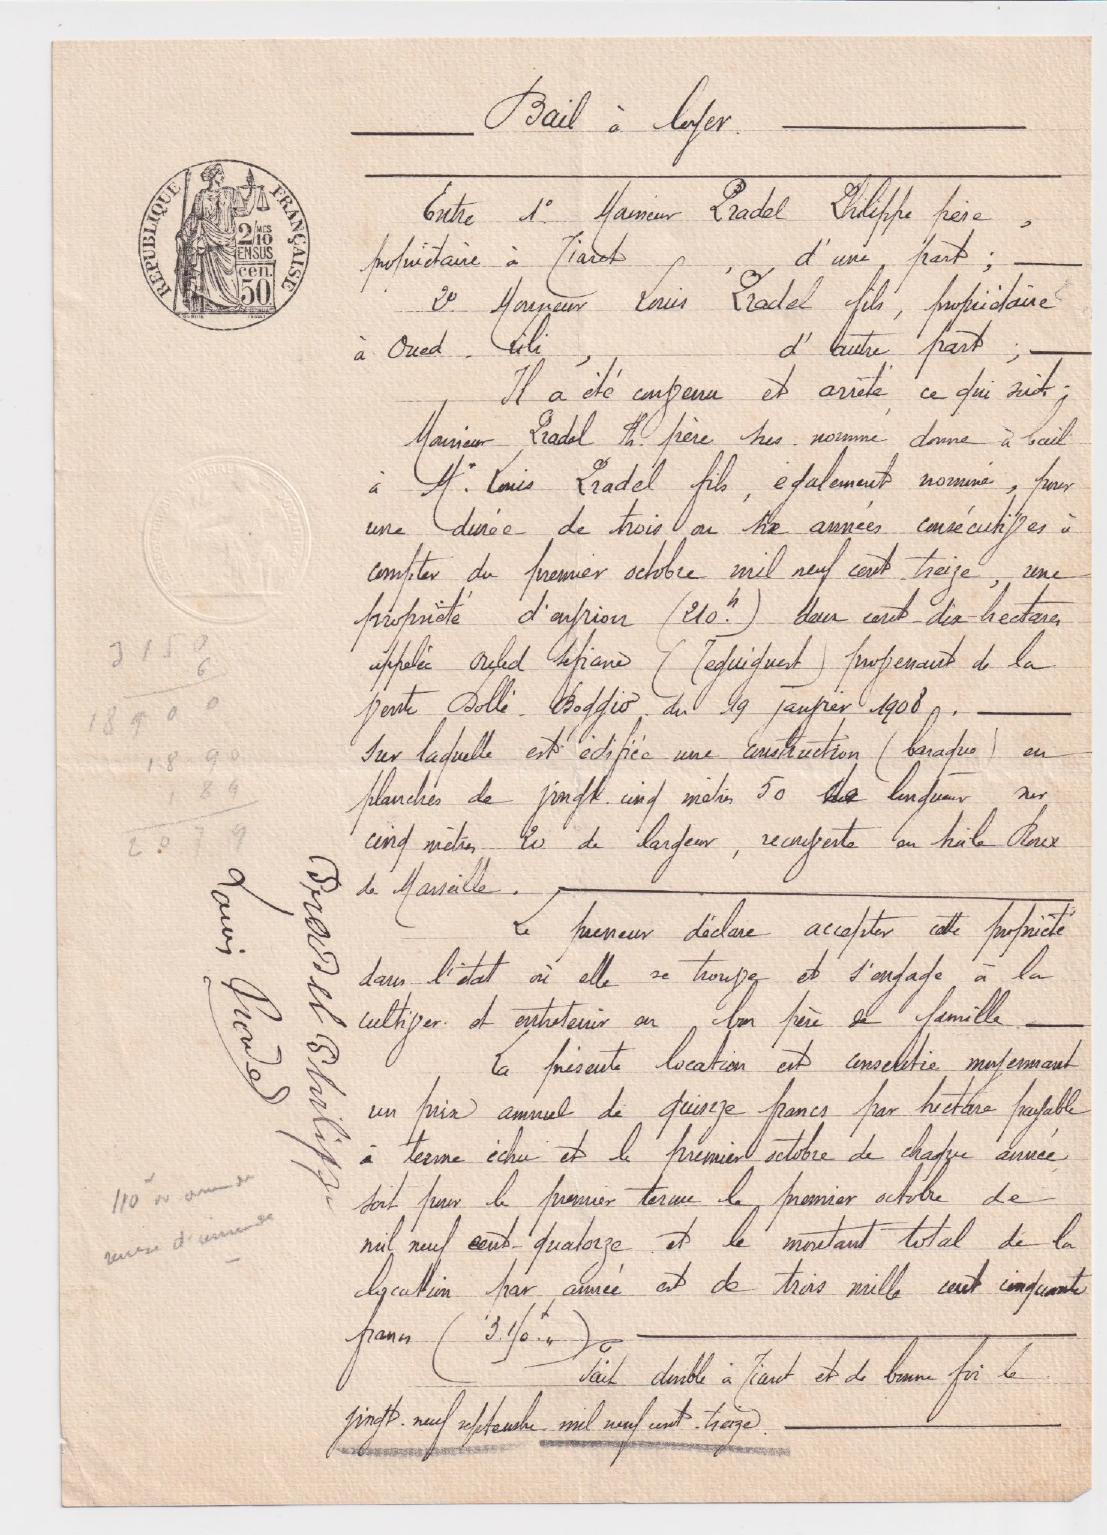 Bail à loyer.
RÉPUBLIQUE FRANÇAISE
2/10 MES
EN SUS
50 cen.
Entre 1° Monsieur Pradel Philippe père,
propriétaire à Tiaret, d'une part;
2° Monsieur Louis Pradel fils, propriétaire
à Oued-Lili, d'autre part;
Il a été convenu et arrêté ce qui suit:
Monsieur Pradel Ph. père sus-nommé donne à bail
à Mr. Louis Pradel fils, également nommé, pour
une durée de trois ou six années consécutives à
compter du premier octobre mil neuf cent treize, une
propriété d'environ (210h) deux cent-dix-hectares
appelée Ouled (Teguiguest) provenant de la
vente Dollé-Boggio du 19 janvier 1908.
sur laquelle est édifiée une construction (baraque) en
planches de vingt-cinq mètres 50 de longueur sur
cinq mètres 20 de largeur, recouverte en tuile Roux
de Marseille.
Le preneur déclare accepter cette propriété
dans l'état où elle se trouve et s'engage à la
cultiver et entretenir en bon père de famille
La présente location est consentie moyennant
un prix annuel de quinze francs par hectare payable
à terme échu et le premier octobre de chaque année
soit pour le premier terme le premier octobre de
mil neuf cent-quatorze et le montant total de la
location par année est de trois mille cent cinquante
francs (3.150 f. ")
Fait double à Tiaret et de bonne foi le
vingt-neuf septembre mil neuf cent-treize.
3150
6
18900
1890
189
2079
Pradel Philippe
Louis Pradel